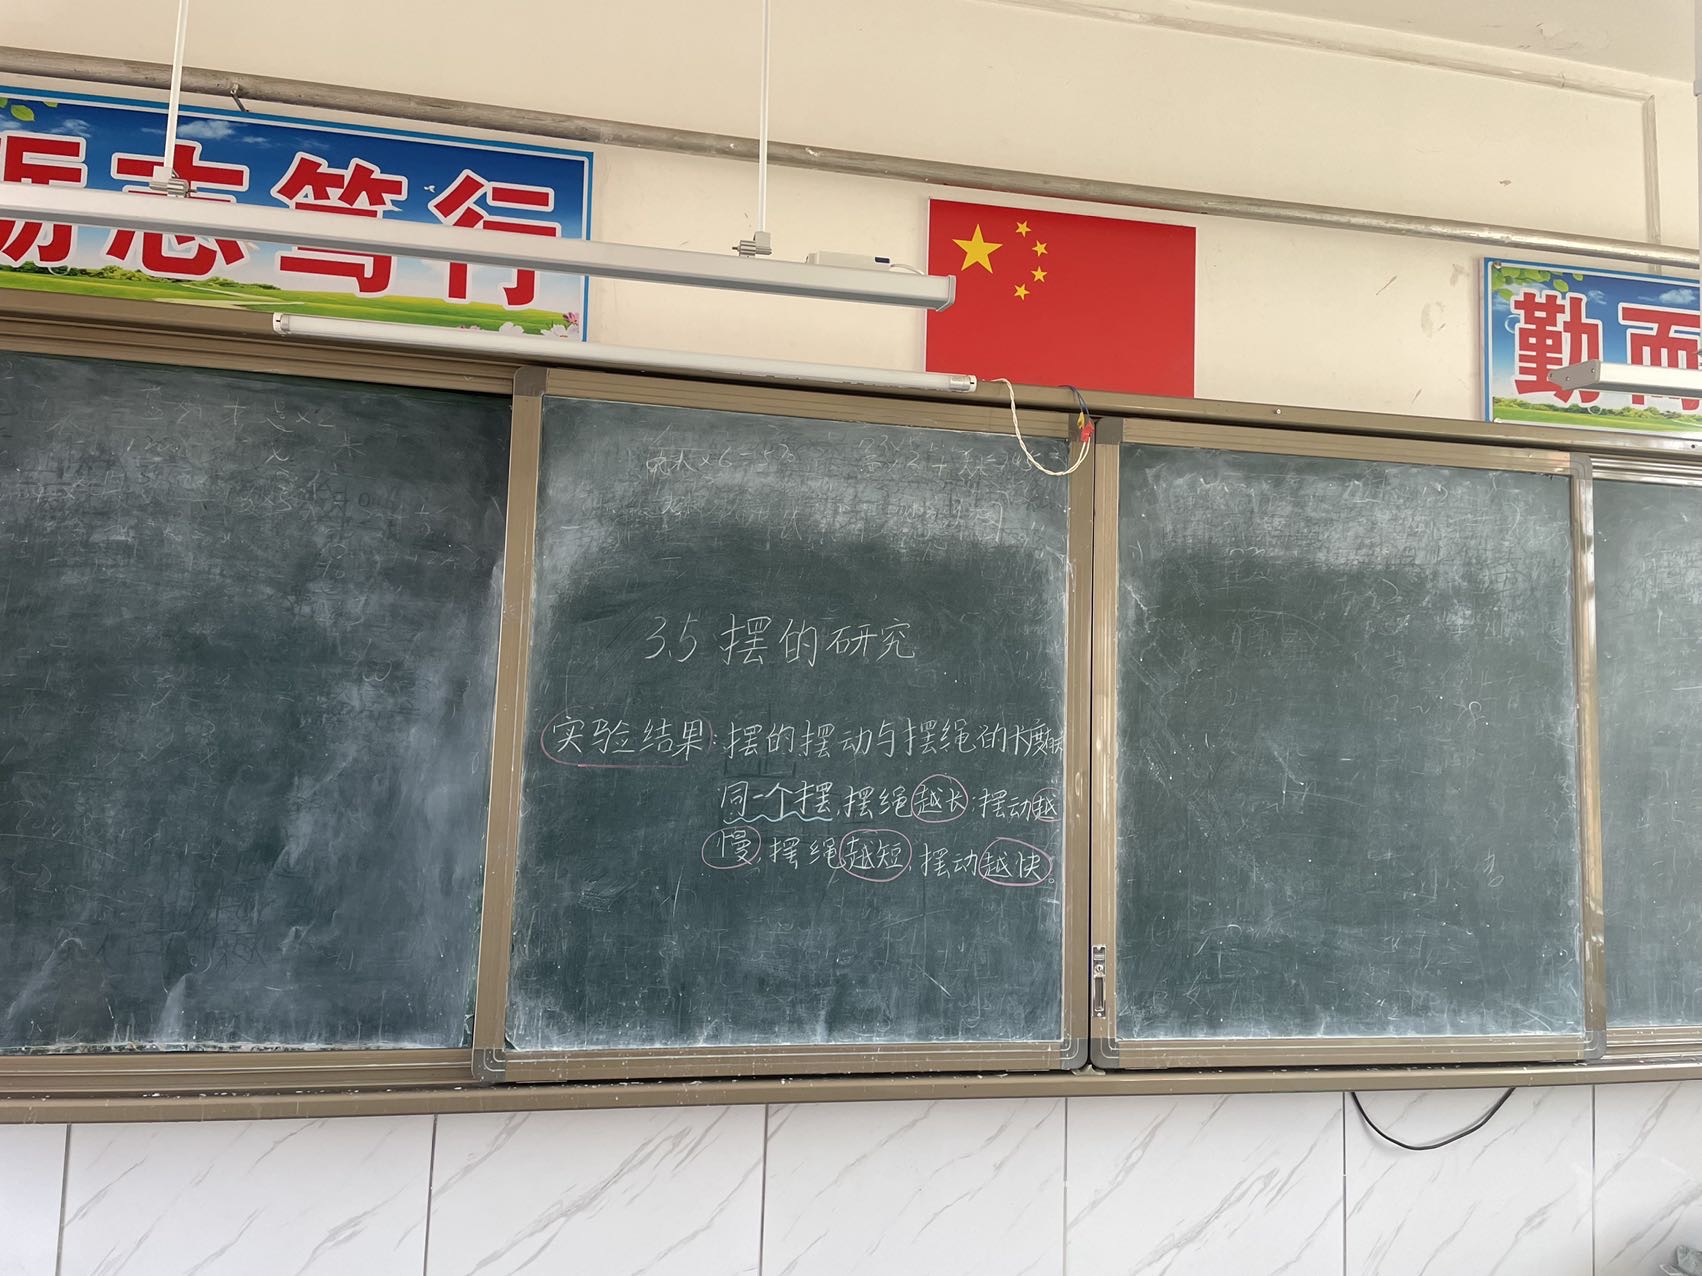 志笃行
勤而
3.5 摆的研究
实验结果：摆的摆动与摆绳的长度有关
同一个摆，摆绳越长，摆动越
慢，摆绳越短，摆动越快。